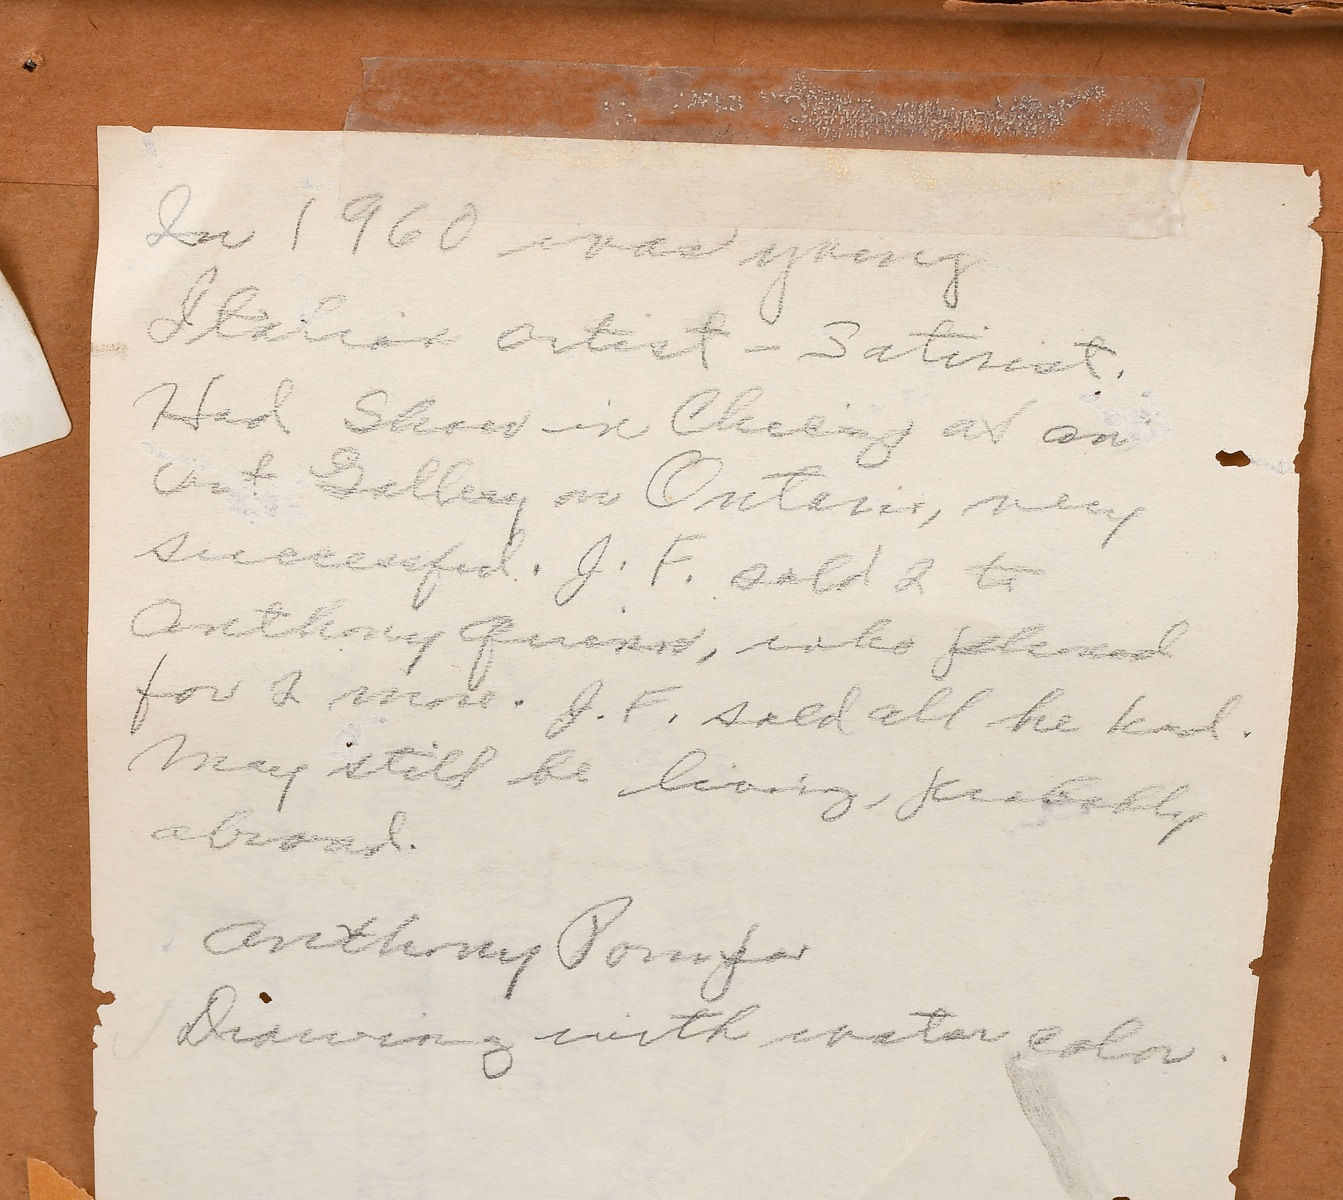 In 1960 was young
Italian artist - Satirist.
Had Show in Chicago at an
art Gallery on Ontario, very
successful. J. F. sold 2 to
Anthony Quinn, who phoned
for 2 more. J. F. sold all he had.
May still be living, probably
abroad.
Anthony
Drawing with water color.